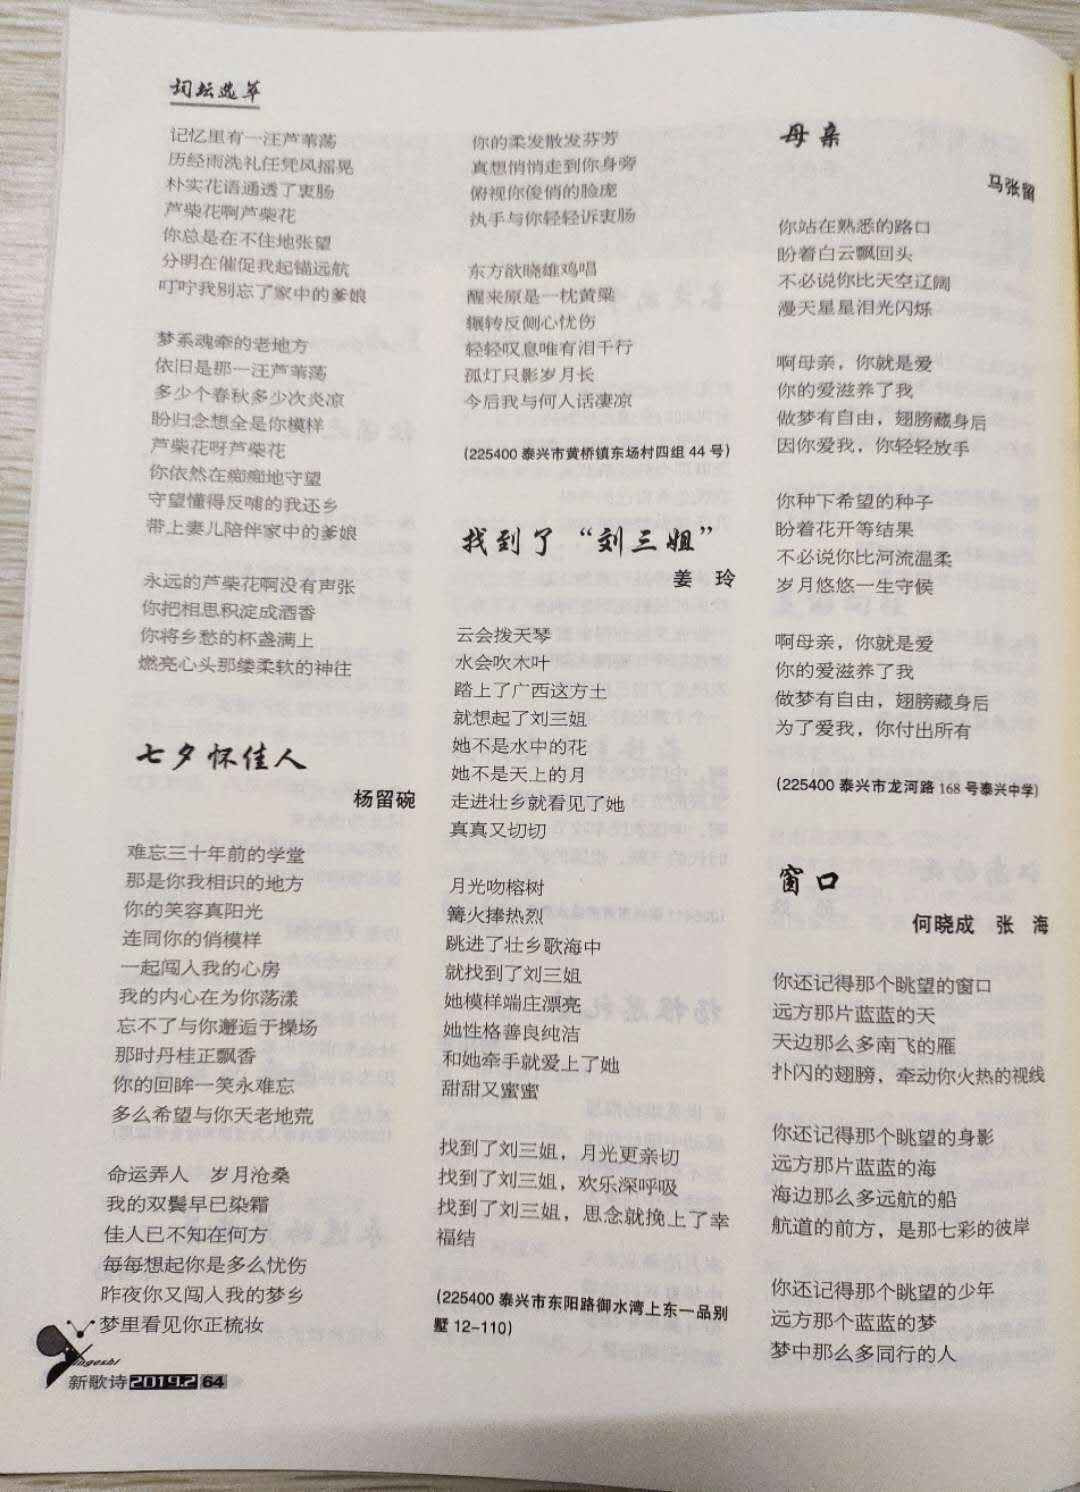 词坛选萃
记忆里有一汪芦苇荡
历经雨洗礼任凭风摇晃
朴实花语通透了衷肠
芦柴花啊芦柴花
你总是在不住地张望
分明在催促我起锚远航
叮咛我别忘了家中的爹娘
梦系魂牵的老地方
依旧是那一汪芦苇荡
多少个春秋多少次炎凉
盼归念想全是你模样
芦柴花呀芦柴花
你依然在痴痴地守望
守望懂得反哺的我还乡
带上妻儿陪伴家中的爹娘
永远的芦柴花啊没有声张
你把相思积淀成酒香
你将乡愁的杯盏满上
燃亮心头那缕柔软的神往
七夕怀佳人
杨留碗
难忘三十年前的学堂
那是你我相识的地方
你的笑容真阳光
连同你的俏模样
一起闯入我的心房
我的内心在为你荡漾
忘不了与你邂逅于操场
那时丹桂正飘香
你的回眸一笑永难忘
多么希望与你天老地荒
命运弄人　岁月沧桑
我的双鬓早已染霜
佳人已不知在何方
每每想起你是多么忧伤
昨夜你又闯入我的梦乡
梦里看见你正梳妆
你的柔发散发芬芳
真想悄悄走到你身旁
俯视你俊俏的脸庞
执手与你轻轻诉衷肠
东方欲晓雄鸡唱
醒来原是一枕黄粱
辗转反侧心忧伤
轻轻叹息唯有泪千行
孤灯只影岁月长
今后我与何人话凄凉
(225400 泰兴市黄桥镇东场村四组 44 号)
找到了“刘三姐”
姜　玲
云会拨天琴
水会吹木叶
踏上了广西这方土
就想起了刘三姐
她不是水中的花
她不是天上的月
走进壮乡就看见了她
真真又切切
月光吻榕树
篝火捧热烈
跳进了壮乡歌海中
就找到了刘三姐
她模样端庄漂亮
她性格善良纯洁
和她牵手就爱上了她
甜甜又蜜蜜
找到了刘三姐，月光更亲切
找到了刘三姐，欢乐深呼吸
找到了刘三姐，思念就挽上了幸
福结
(225400 泰兴市东阳路御水湾上东一品别
墅 12-110)
母亲
马张留
你站在熟悉的路口
盼着白云飘回头
不必说你比天空辽阔
漫天星星泪光闪烁
啊母亲，你就是爱
你的爱滋养了我
做梦有自由，翅膀藏身后
因你爱我，你轻轻放手
你种下希望的种子
盼着花开等结果
不必说你比河流温柔
岁月悠悠一生守候
啊母亲，你就是爱
你的爱滋养了我
做梦有自由，翅膀藏身后
为了爱我，你付出所有
(225400 泰兴市龙河路 168 号泰兴中学)
窗口
何晓成　张　海
你还记得那个眺望的窗口
远方那片蓝蓝的天
天边那么多南飞的雁
扑闪的翅膀，牵动你火热的视线
你还记得那个眺望的身影
远方那片蓝蓝的海
海边那么多远航的船
航道的前方，是那七彩的彼岸
你还记得那个眺望的少年
远方那个蓝蓝的梦
梦中那么多同行的人
新歌诗 2019.2 64